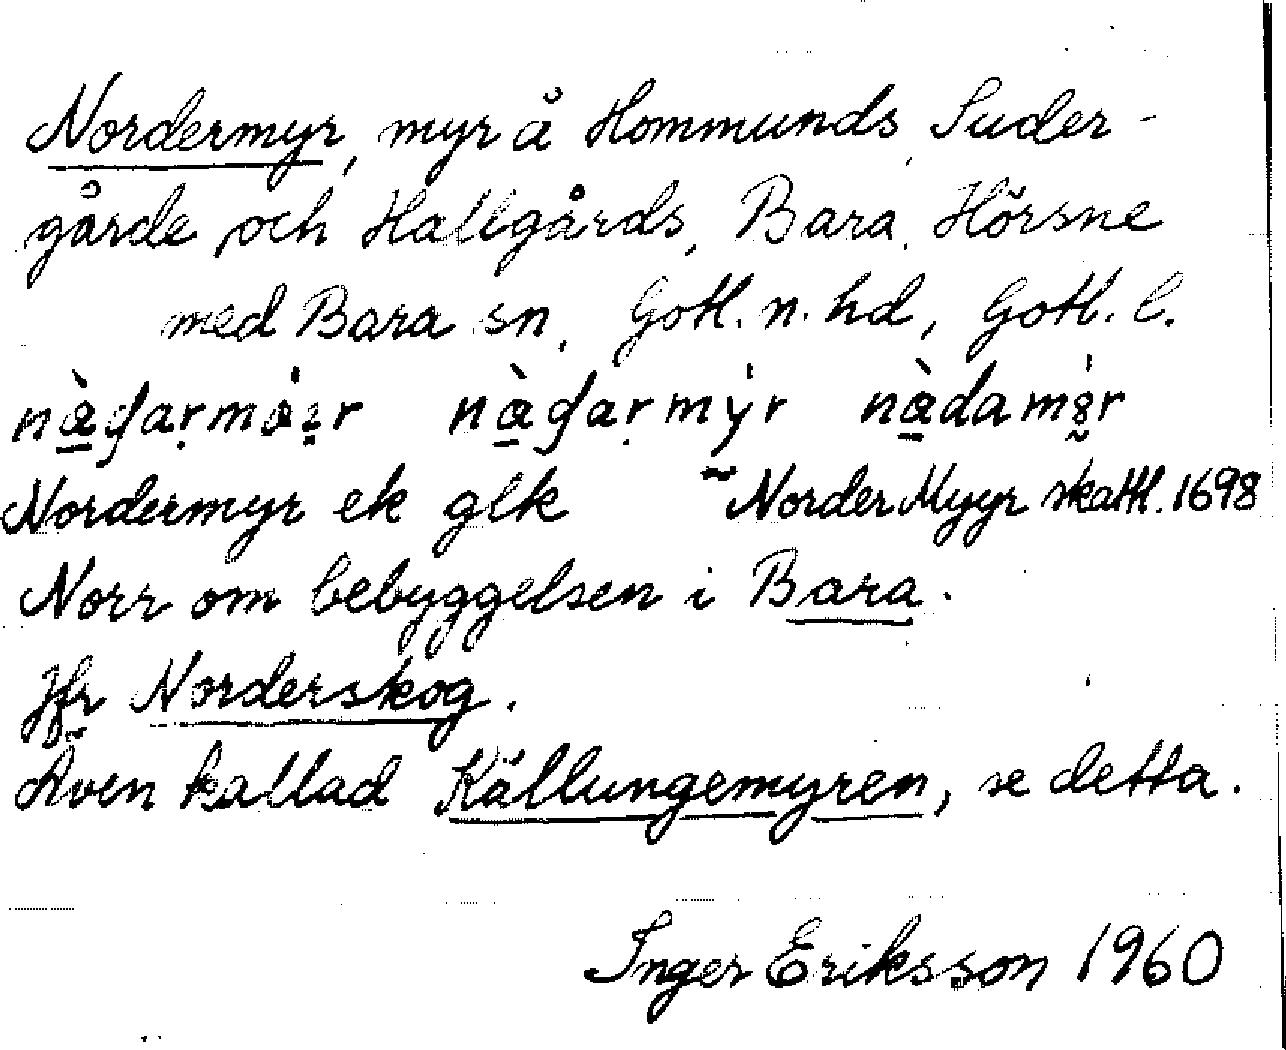 Nordermyr, myr å Hommunds, Suder-
gårde och Hallgårds, Bara, Hörsne
med Bara sn, Gotl. n. hd, Gotl. l.
Nordermyr ek glk Norder Myyr skattl. 1698
Norr om bebyggelsen i Bara.
Jfr Norderskog.
Även kallad Källungemyren, se detta.
Inger Eriksson 1960